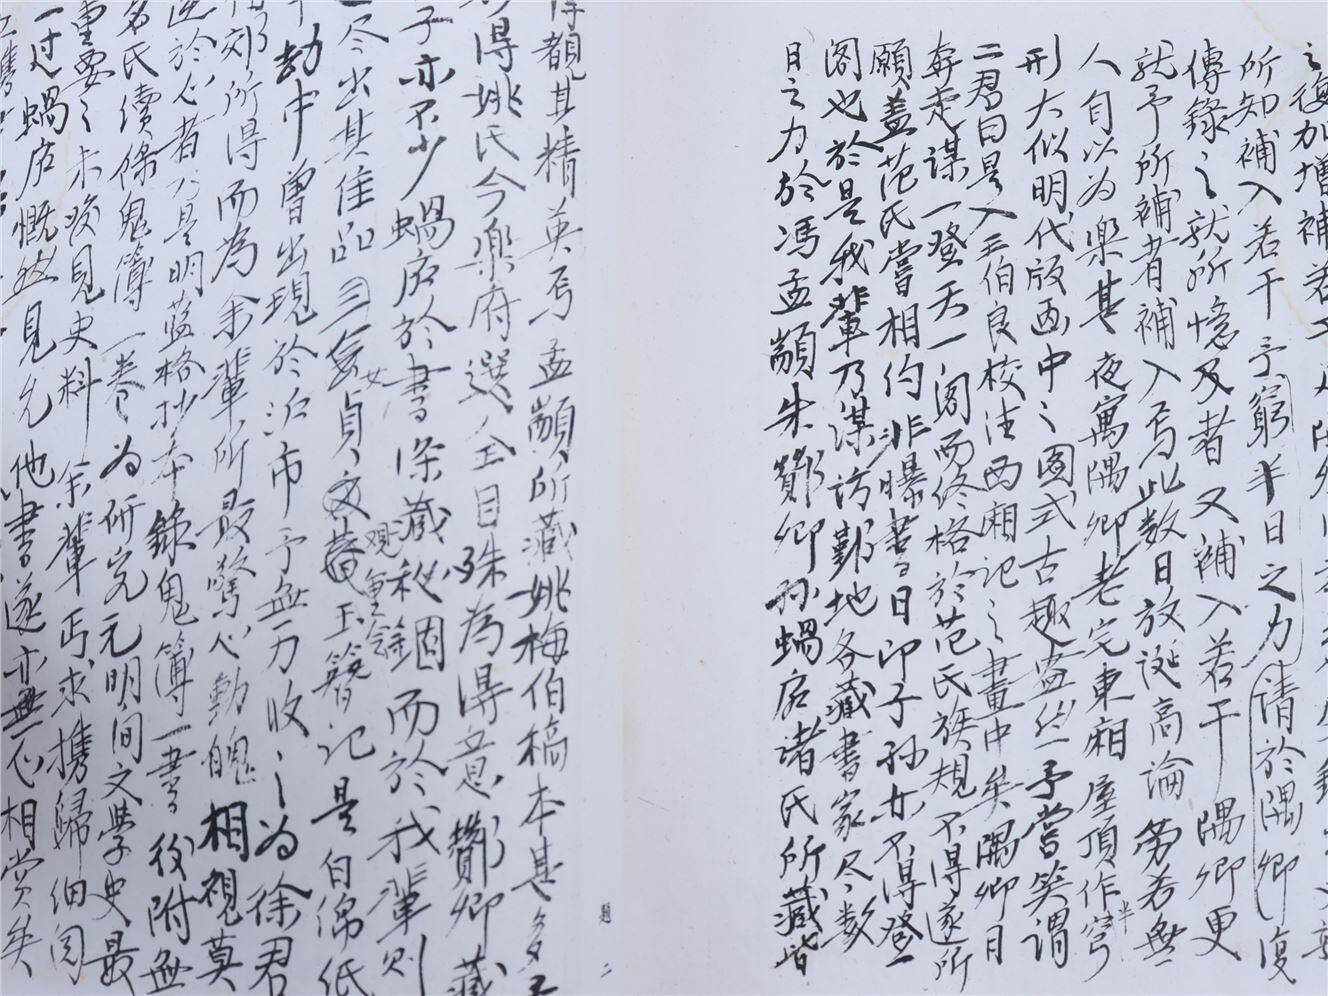 之復加增補若干
所知補入若干予窮半日之力請於隅卿復
傳錄之就所憶及者又補入若干隅卿更
就予所補者補入焉此數日放誕高論旁若無
人自以為樂甚夜寓隅卿老宅東廂屋頂作半穹
形大似明代版畫中之圖式古趣盎然予嘗笑謂
二君曰是入王伯良校注西廂記之畫中矣隅卿日
奔走謀一登天一閣而終格於范氏族規不得遂所
願蓋范氏嘗相約非曝書日即子孫亦不得登
閣也於是我輩乃謀訪鄞地各藏書家尽數
日之力於馮孟顓朱酇卿孫蝸庐諸氏所藏皆
得覩其精英焉孟顓所藏姚梅伯稿本甚多
得姚氏今樂府選全目殊為得意酇卿藏
子亦不少蝸庐於書深藏秘固而於我輩則
尽出其佳品三女貞觀重會玉簪記是白綿紙
劫中曾出現於沪市予無力收之為徐君
郊所得而為余輩所最驚心動魄相視莫
逆於心者乃是明藍格抄本錄鬼簿一書後附無
名氏續錄鬼簿一卷為研究元明間文學史最
重要之未發見史料余輩丐求携歸細閱
一过蝸庐慨然見允他書遂亦無心相赏矣
題
二